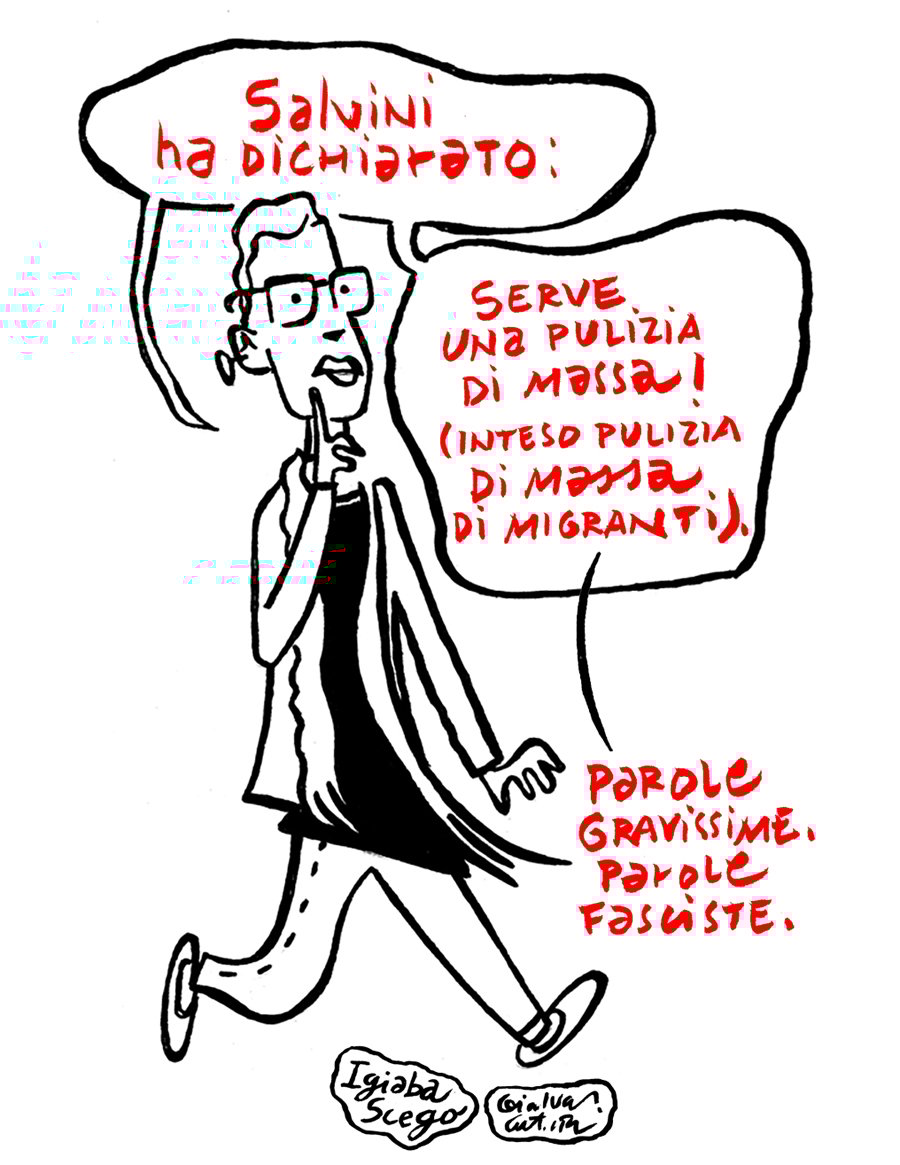 Salvini
ha DICHIARATO:
SERVE
UNA PULIZIA
Di MASSA!
(INTESO PULIZIA
Di MASSA
Di MIGRANTi).
PAROLE
GRAVISSIME.
PAROLE
FASCISTE.
Igiaba
Scego